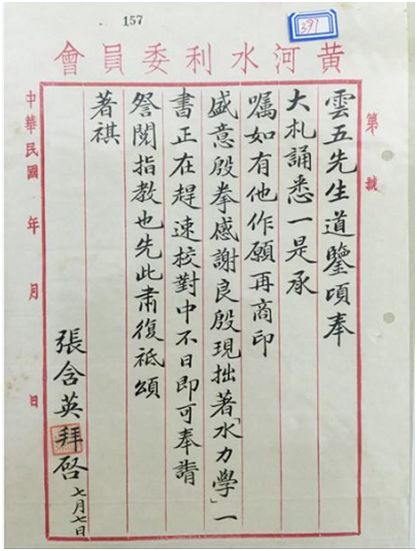 157
391
黄河水利委員會
第 號
雲五先生道鑒頃奉
大札誦悉一是承
囑如有他作願再商印
盛意殷拳感謝良殷現拙著「水力學」一
書正在趕速校對中不日即可奉請
詧閱指教也先此肅復祗頌
著祺
張含英拜啓 七月七日
中華民國 年 月 日